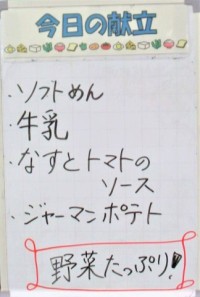 今日の献立
・ソフトめん
・牛乳
・なすとトマトの
ソース
・ジャーマンポテト
野菜たっぷり!